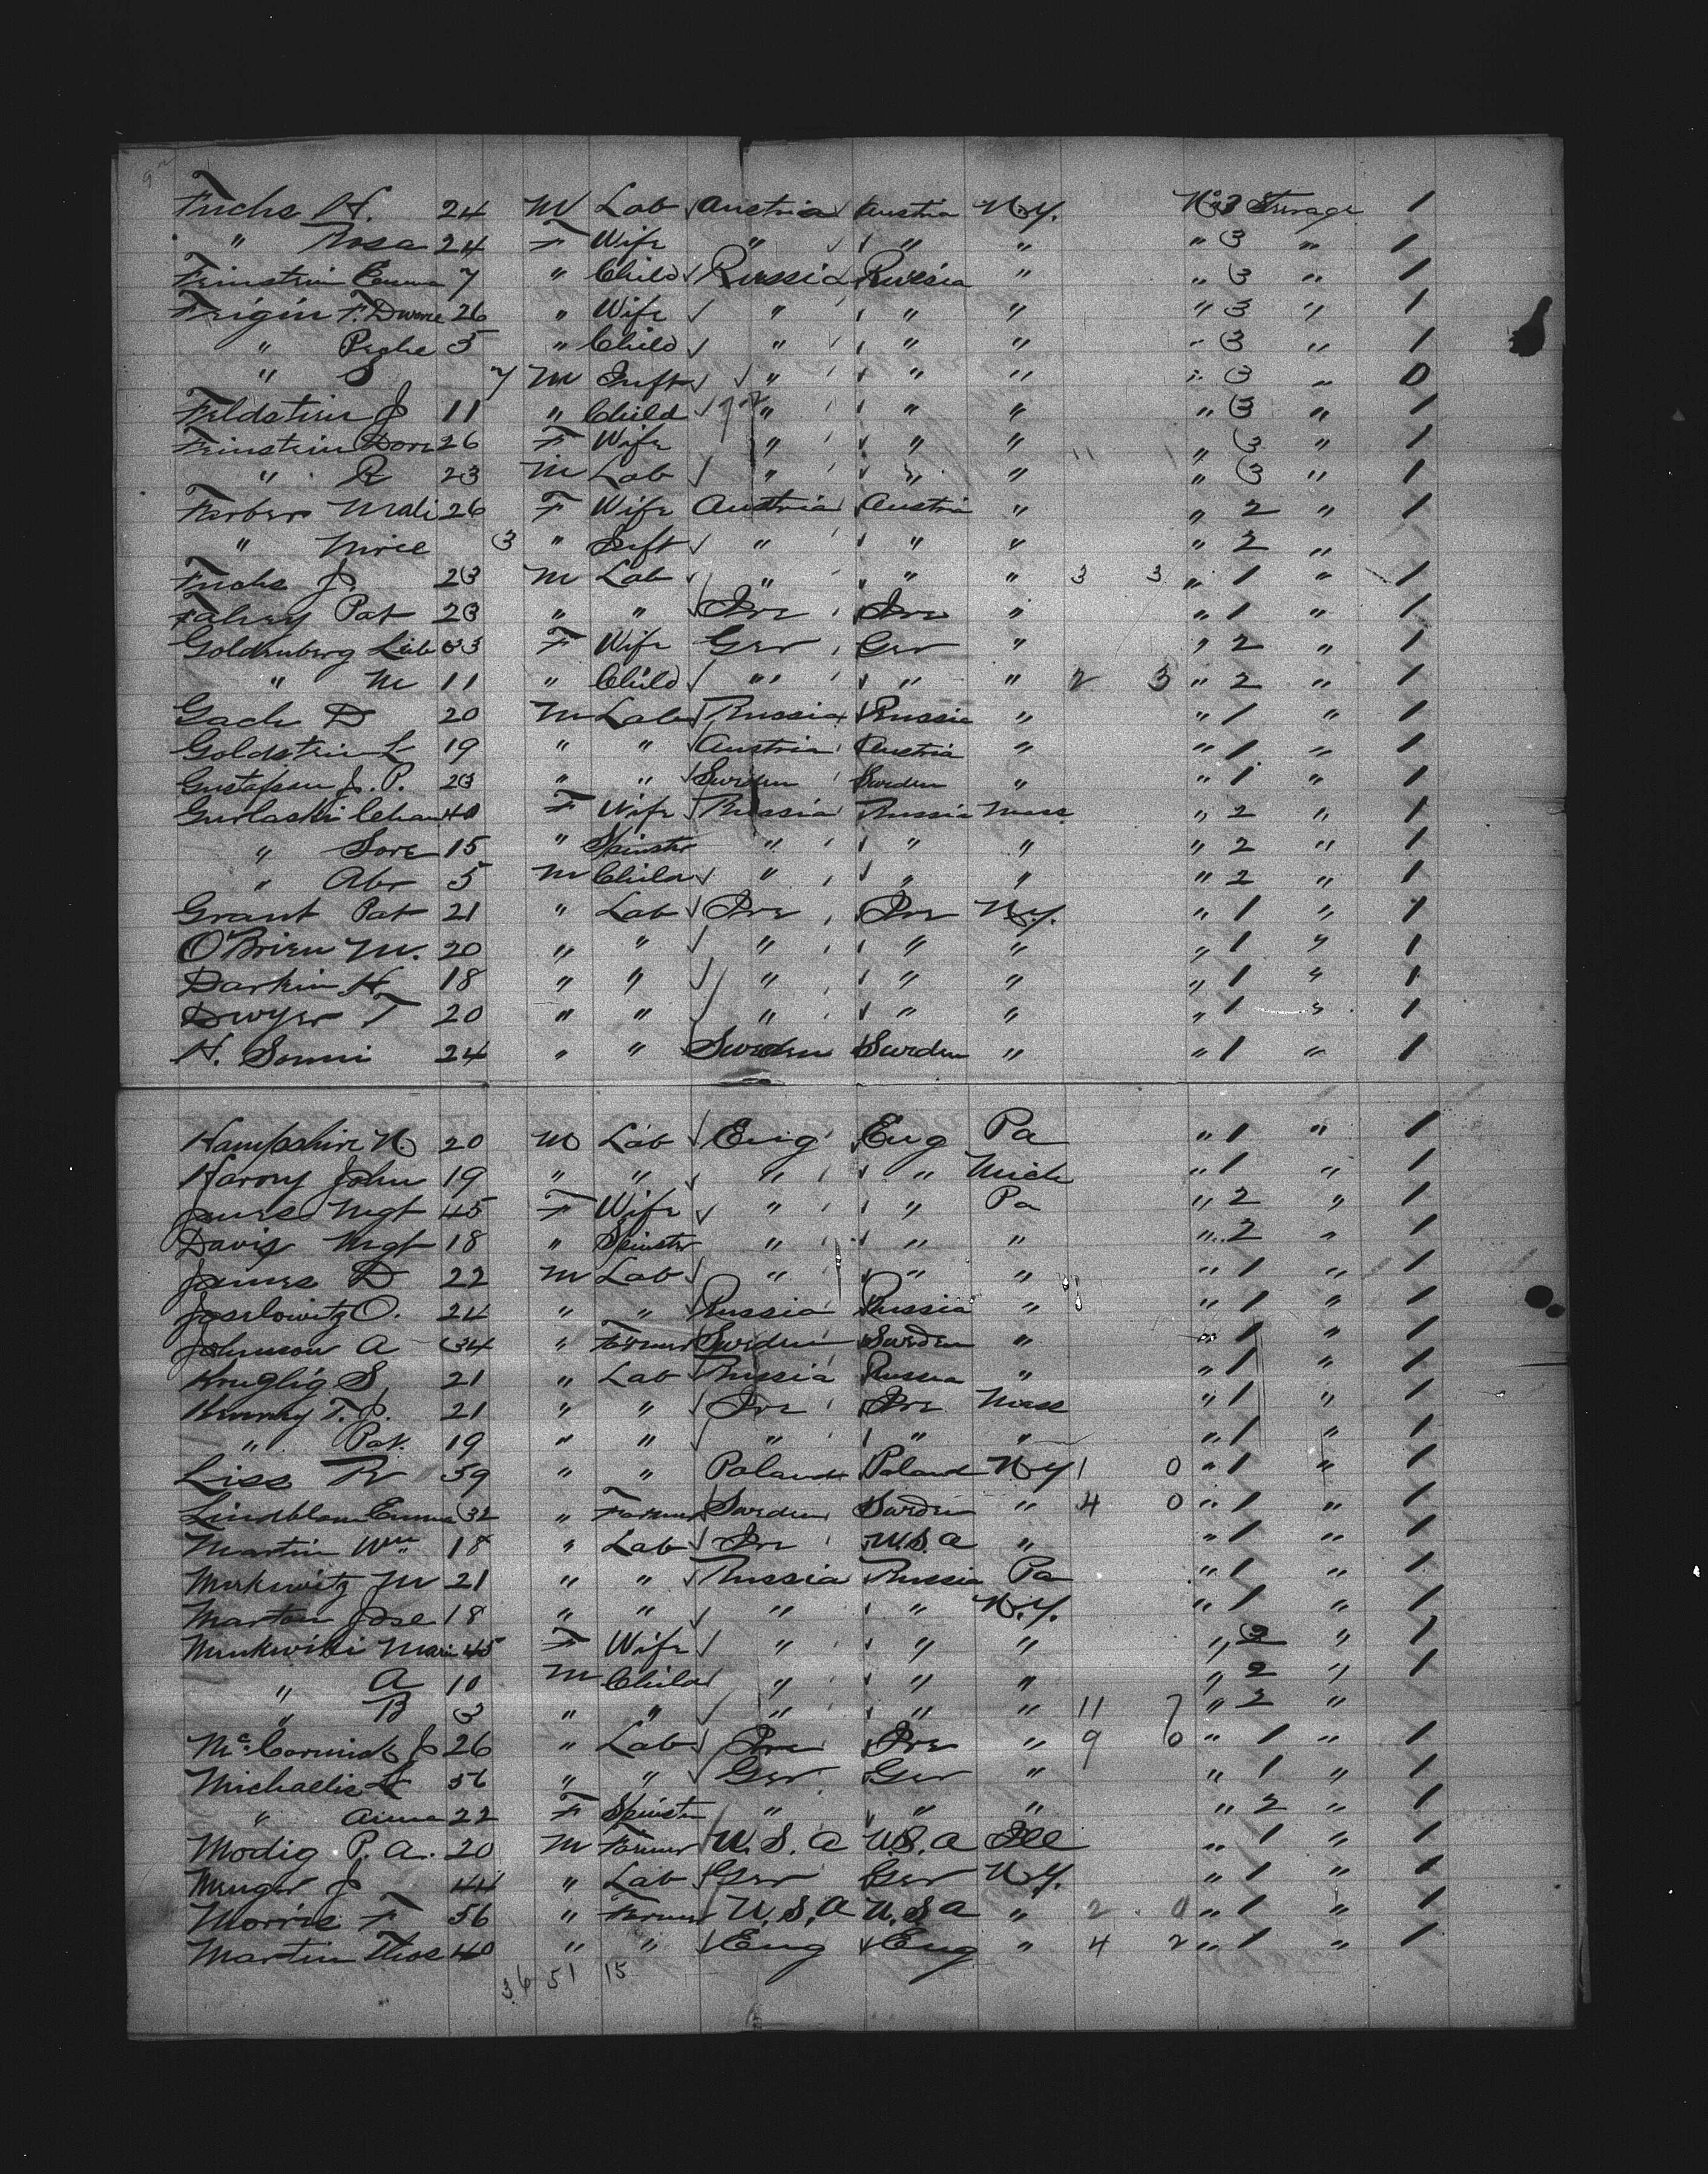 Fuchs H. 24 M Lab Austria Austria N.Y. No 3 Steerage 1
" Rosa 24 F Wife " " " " 3 " 1
Feinstein Emma 7 " Child Russia Russia " " 3 " 1
Feigin F. 26 " Wife " " " " 3 " 1
" 5 " Child " " " " 3 " 1
" S 7 M Inft " " " " 3 " 0
Feldstein J 11 " Child " " " " 3 " 1
Feinstein Dore 26 F Wife " " " " 3 " 1
" R 23 M Lab " " " " 3 " 1
Ferber Mali 26 F Wife Austria Austria " " 2 " 1
" 3 " Inft " " " " 2 "
Fuchs J. 23 M Lab " " " 3 3 " 1 " 1
Fahey Pat 23 " " Ire Ire " " 1 " 1
Goldenberg Lib 33 F Wife Ger Ger " " 2 " 1
" M 11 " Child " " " 2 3 " 2 " 1
Gach D 20 M Lab Russia Russia " " 1 " 1
Goldstein L 19 " " Austria Austria " " 1 " 1
Gustafson J. P. 23 " " Sweden Sweden " " 1 " 1
Gurlaski Chan 40 F Wife Russia Russia Mass " 2 " 1
" Sore 15 " Spinster " " " " 2 " 1
" Abr 5 M Child " " " " 2 " 1
Grant Pat 21 " Lab Ire Ire N.Y. " 1 " 1
O'Brien M. 20 " " " " " " 1 " 1
Darkin H 18 " " " " " " 1 " 1
Dwyer T 20 " " " " " " 1 " 1
H. Sonni 24 " " Sweden Sweden " " 1 " 1
Hampshire N. 20 M Lab Eng Eng Pa " 1 " 1
Harvy John 19 " " " " Mich " 1 " 1
James Mgt 45 F Wife " " Pa " 2 " 1
Davis Mgt 18 " Spinster " " " " 2 " 1
James D 22 M Lab " " " " 1 " 1
Joselowitz O. 24 " " Russia Russia " " 1 " 1
Johnson A 34 " Farmer Sweden Sweden " " 1 " 1
Kruglig S, 21 " Lab Russia Russia " " 1 " 1
Kenny T. J. 21 " " Ire Ire Mass " 1 " 1
" Pat. 19 " " " " " " 1 " 1
Liss R 59 " " Poland Poland N Y 1 0 " 1 " 1
Lindblom Emma 32 " Farmer Sweden Sweden " 4 0 " 1 " 1
Martin Wm 18 " Lab Ire U.S.A " " 1 " 1
Merkewitz M 21 " " Russia Russia Pa " 1 " 1
Marton Jose 18 " " " " N.Y. " 1 " 1
Mari 45 F Wife " " " " 2 " 1
" A 10 M Child " " " " 2 " 1
" B 3 " " " " " 11 7 " 2 "
McCormick J 26 " Lab Ire Ire " 9 6 " 1 " 1
Michaelis L 56 " " Ger Ger " " 1 " 1
" Anna 22 F Spinster " " " " 2 " 1
Modig P. A. 20 M Farmer U. S. A U.S. A Ill " 1 " 1
Menger J 44 " Lab Ger Ger N Y. " 1 " 1
Morris F 56 " Farmer U. S. A U. S. A " 2 0 " 1 " 1
Martin Thos 40 " " Eng Eng " 4 2 " 1 " 1
36 51 15